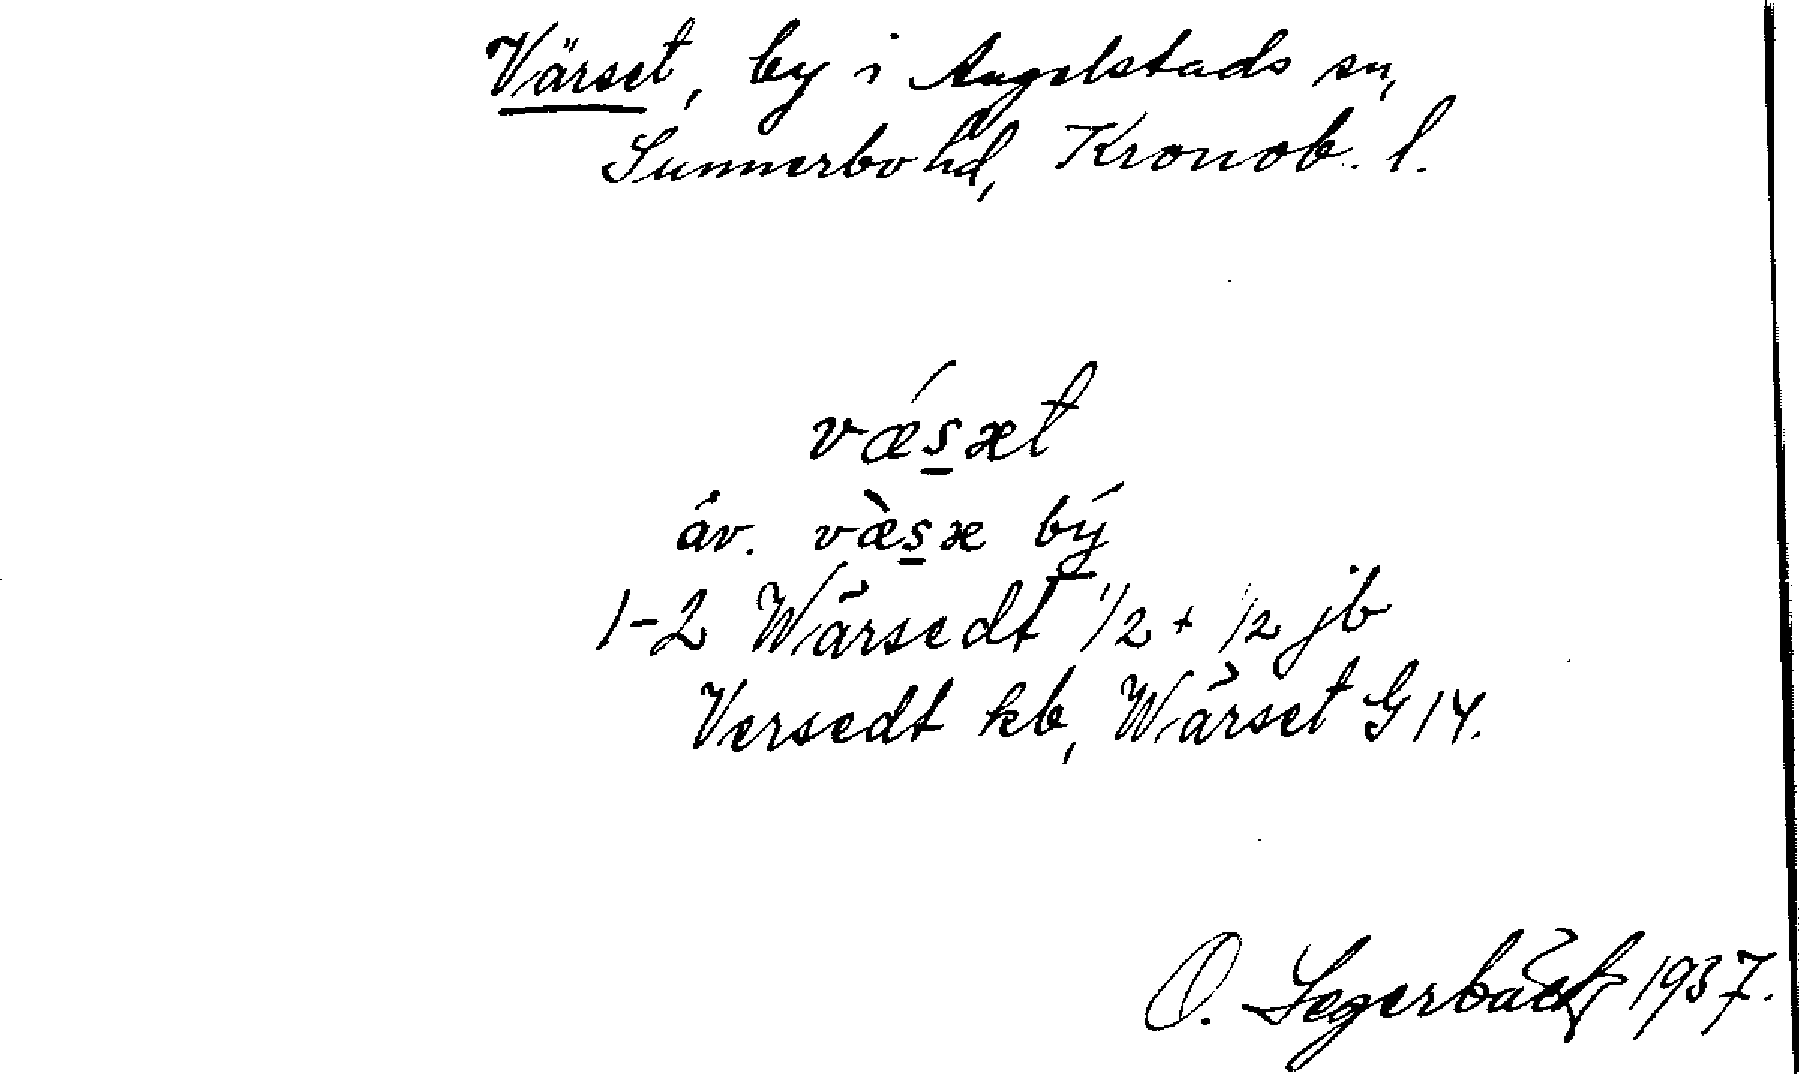 Värset, by i Angelstads sn,
Sunnerbo hd, Kronob. l.
vǽs̱æt
äv. væ̀s̱æ bý
1-2 Wärsedt 1/2 + 1/2 jb
Versedt kb, Wärset G14.
O. Segerbäck 1937.